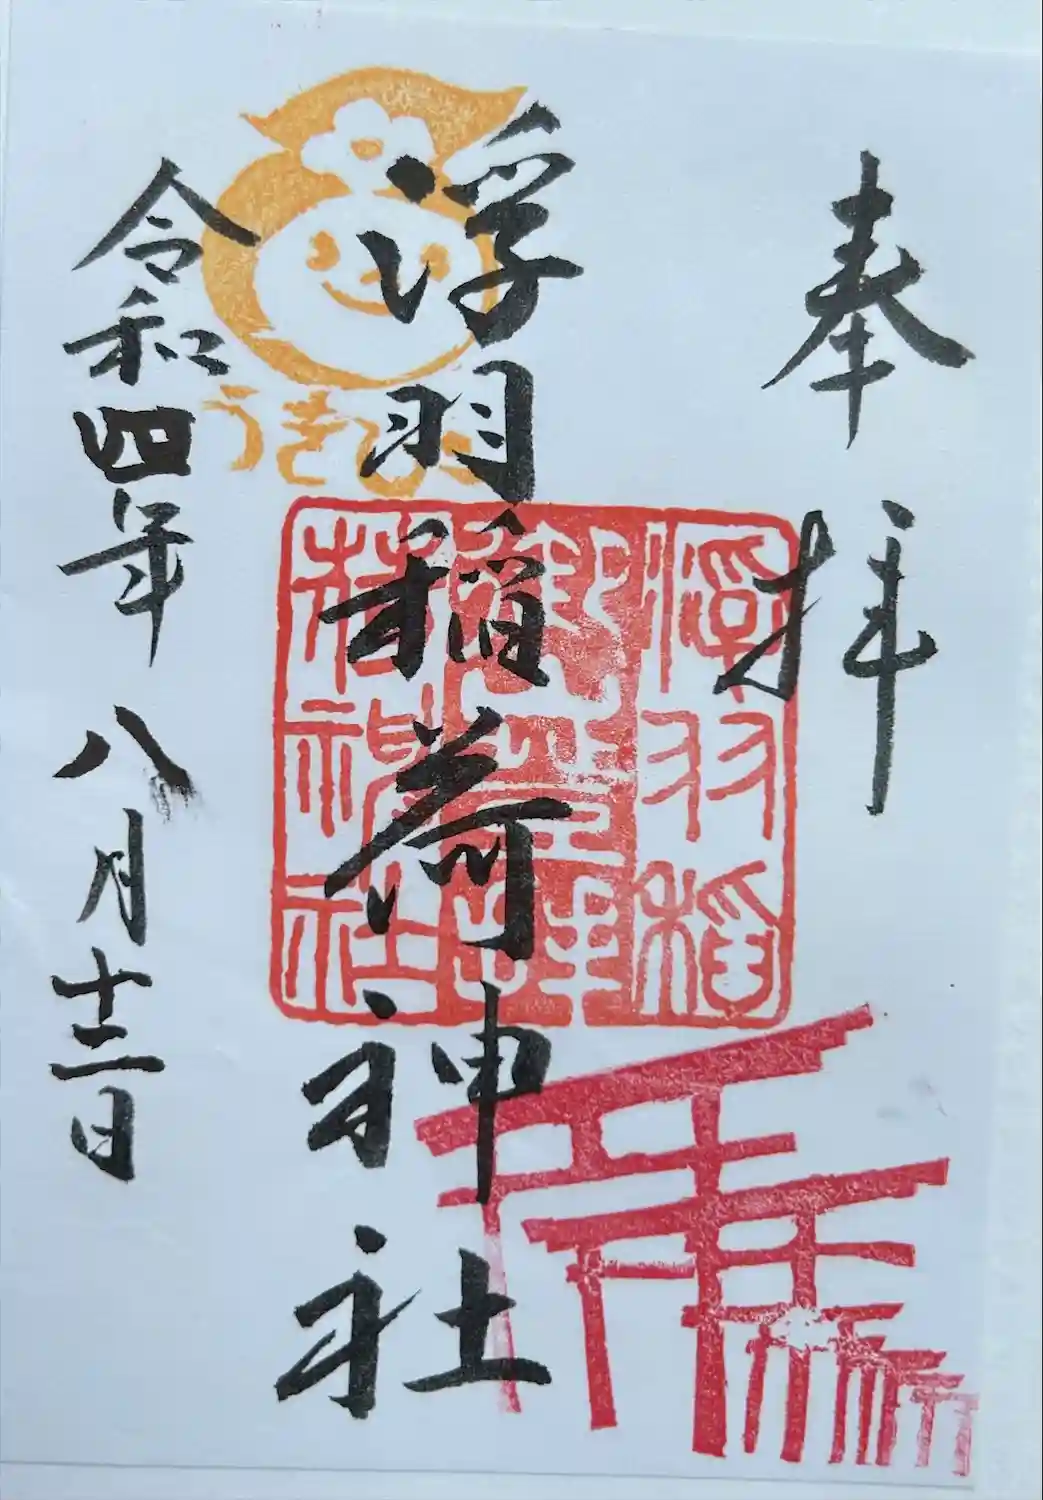 奉拝
浮羽稲荷神社
令和四年八月十二日
うきぴー
浮羽稲
荷神社